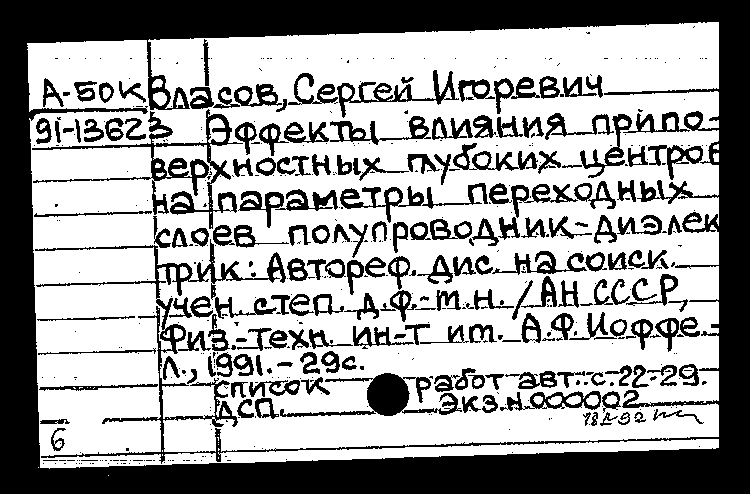 А-50К Власов, Сергей Игоревич
91-13623 Эффекты влияния припо-
верхностных глубоких центров
на параметры переходных
слоев полупроводник-диэлек
трик: Автореф. дис. на соиск.
учен. степ. д.ф.-м.н. / АН СССР,
Физ.-техн. ин-т им. А.Ф.Иоффе.-
Л., 1991.- 29с.
список работ авт.: с.22-29.
ДСП. Экз.N000002
6